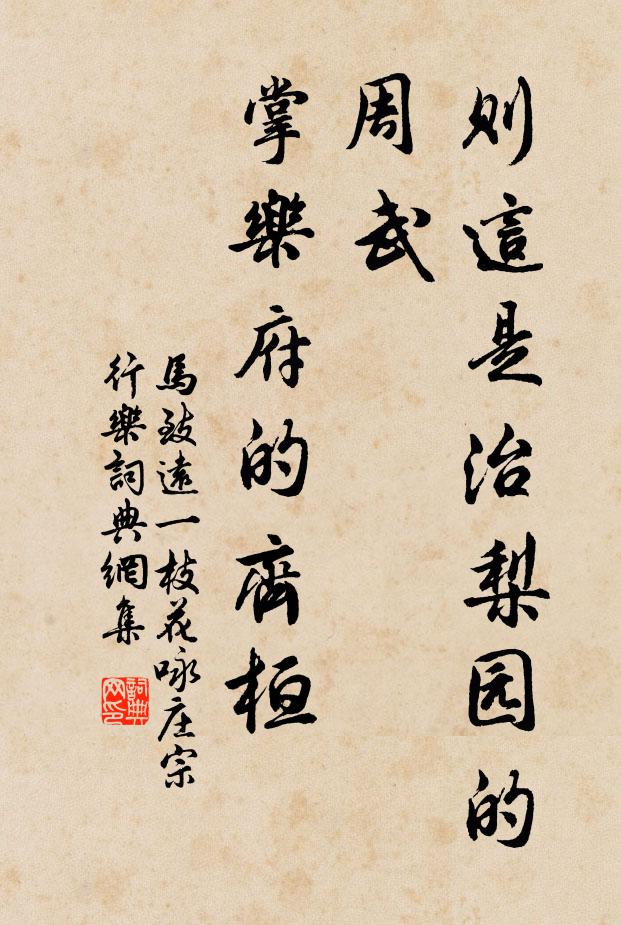 則這是治梨园的
周武
掌樂府的齊桓
馬致遠一枝花咏庄宗
行樂詞典網集
詞典
网印